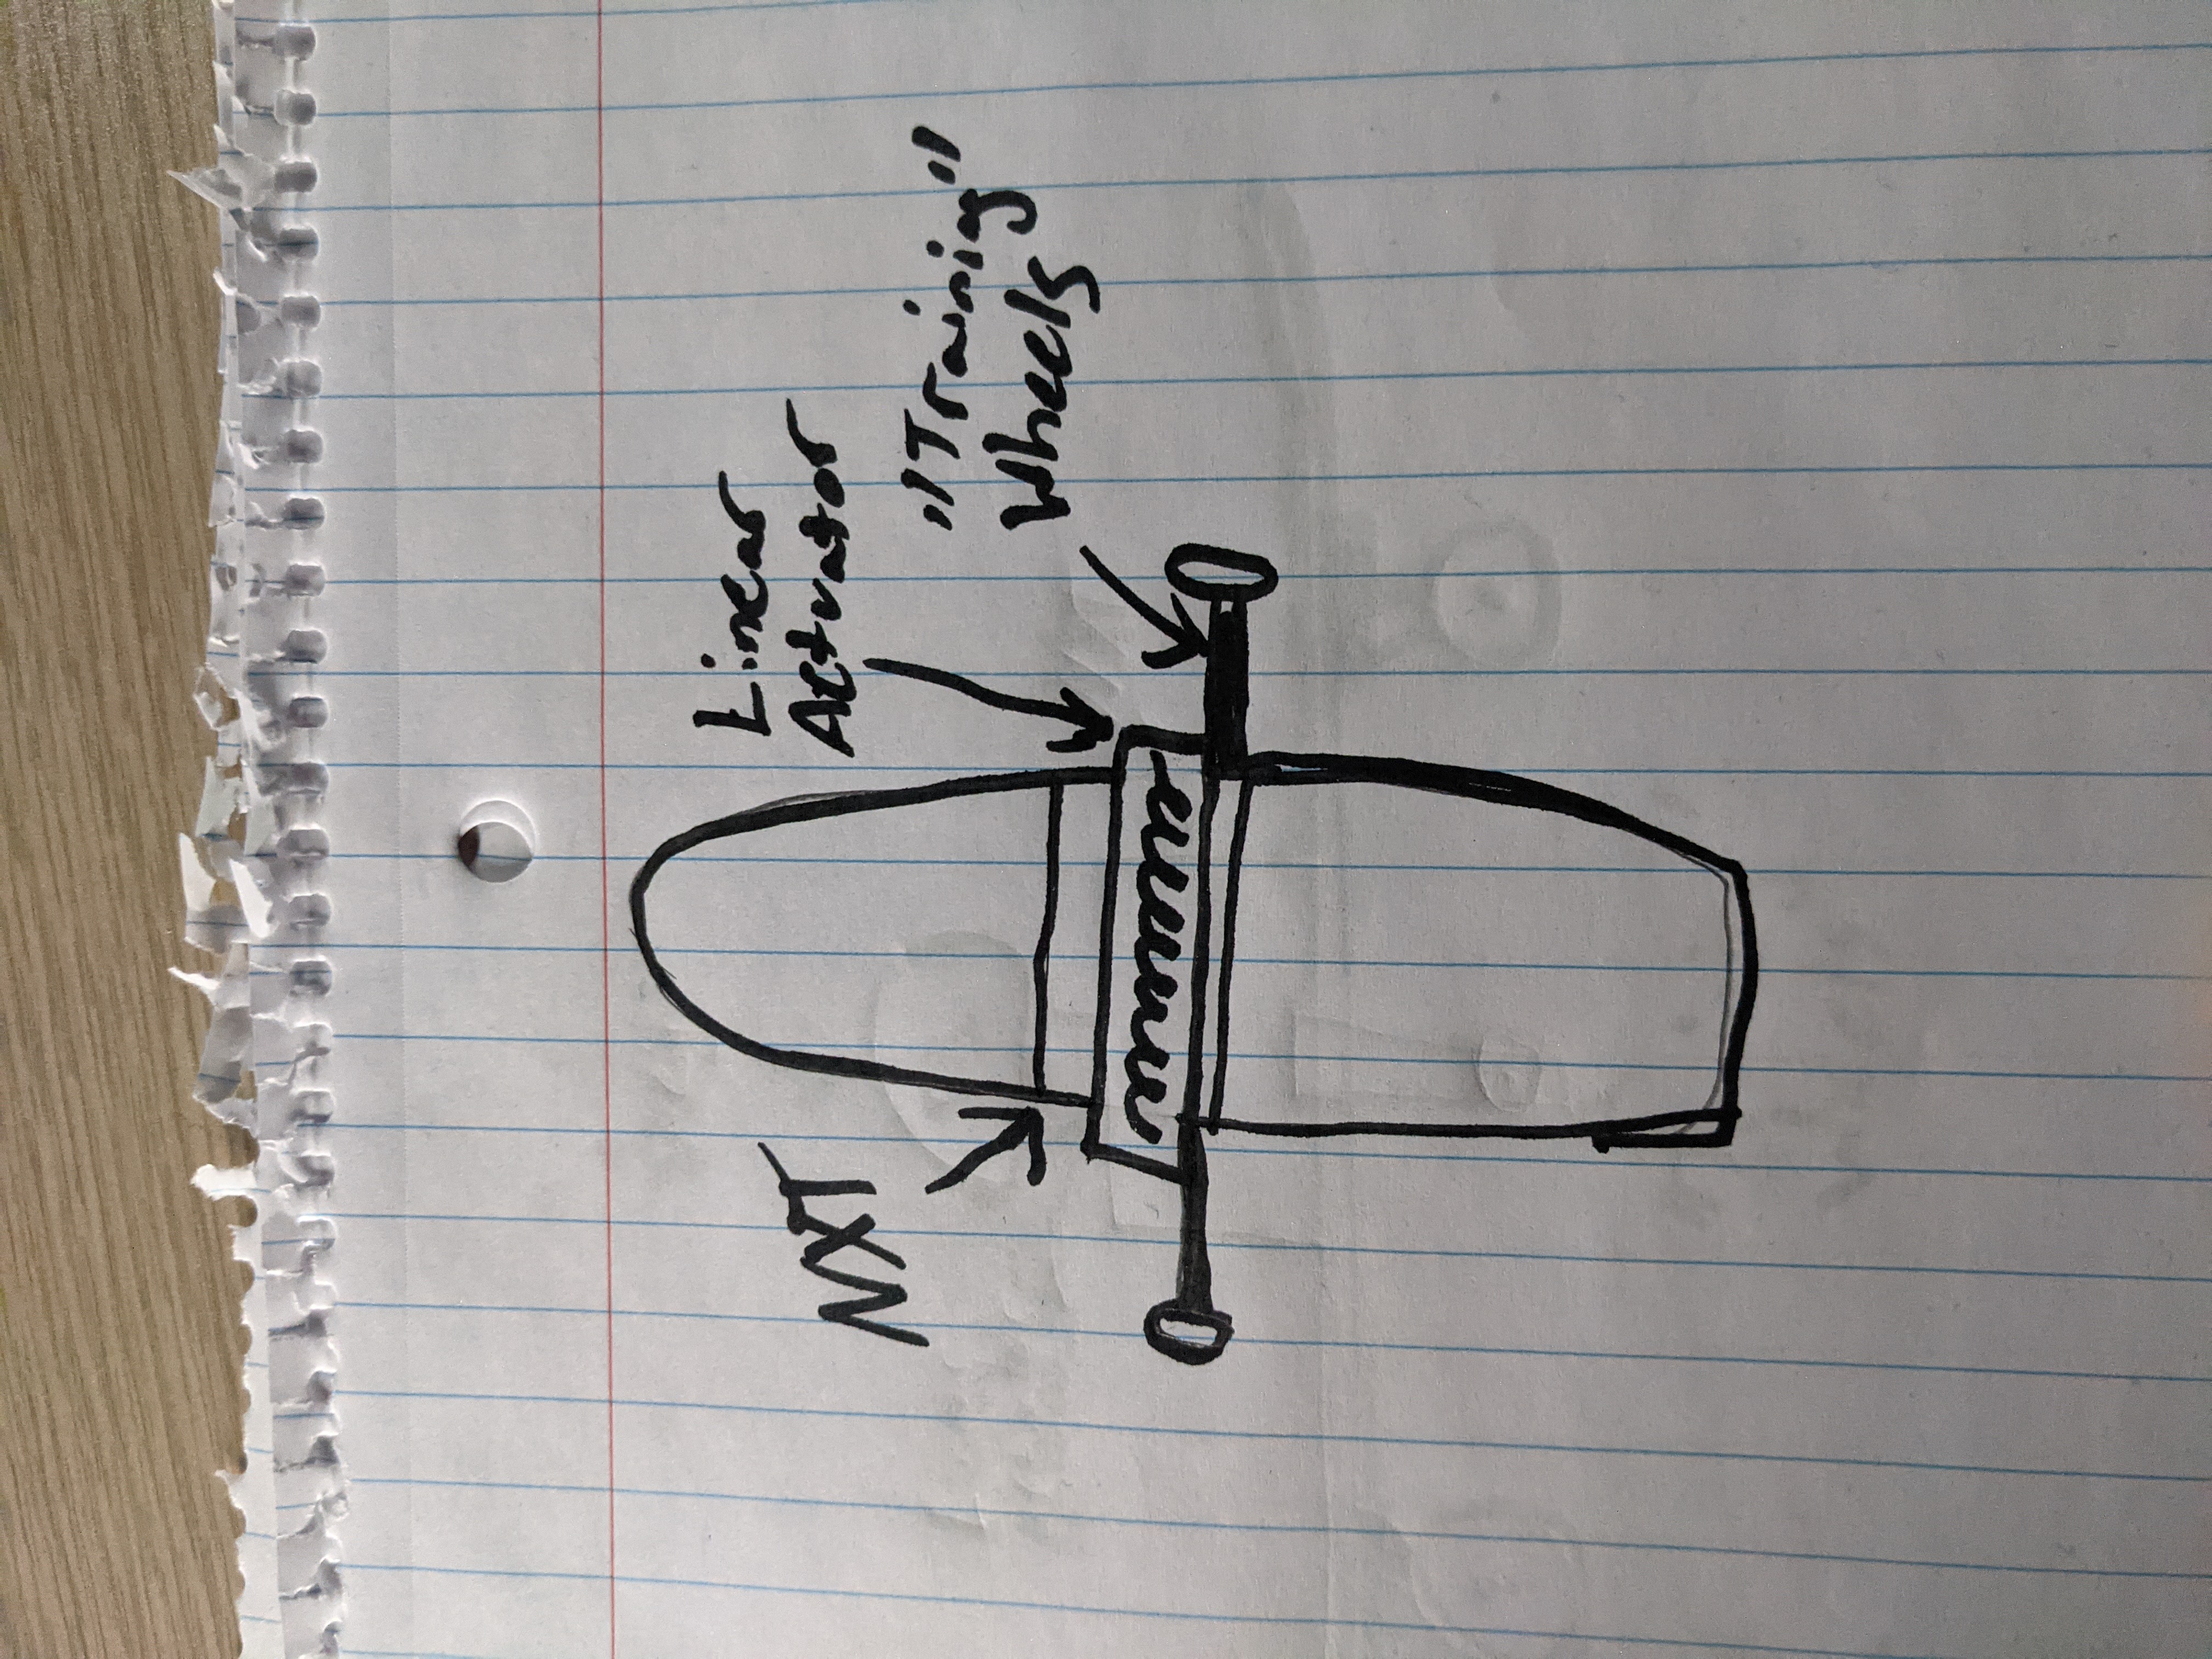 Linear
Actuator
"Training"
Wheels
NXT